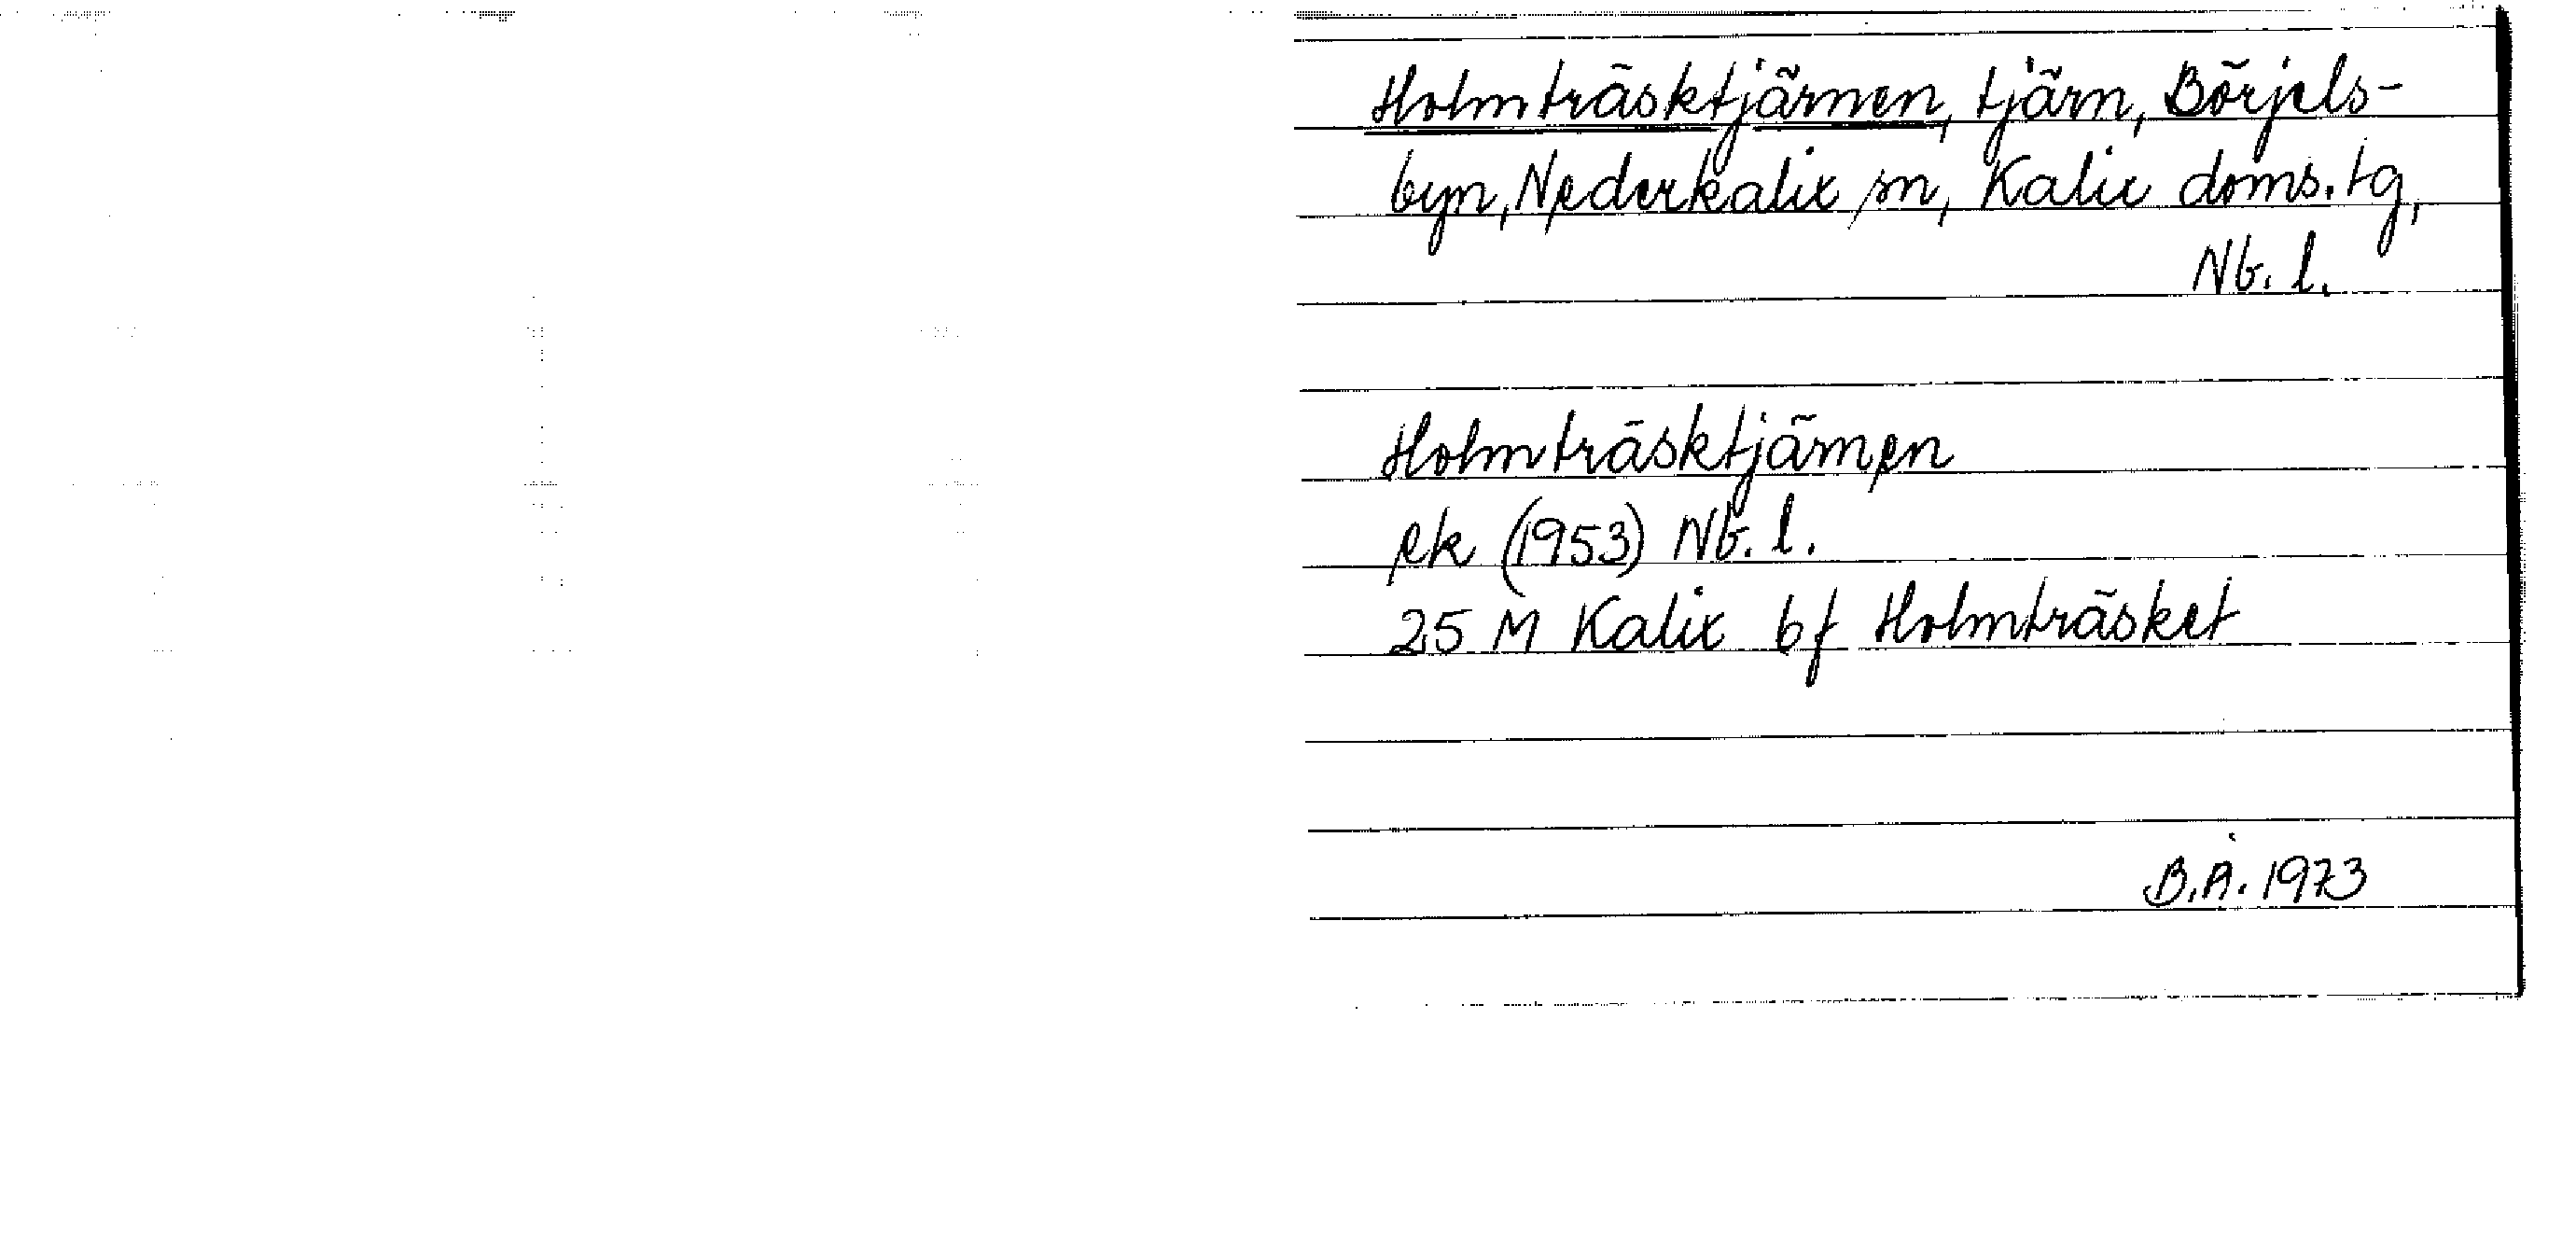 Holmträsktjärnen, tjärn, Börjels-
byn, Nederkalix sn, Kalix doms.tg,
Nb. l.
Holmträsktjärnen
ek (1953) Nb. l.
25 M Kalix bf Holmträsket
B.Å. 1973